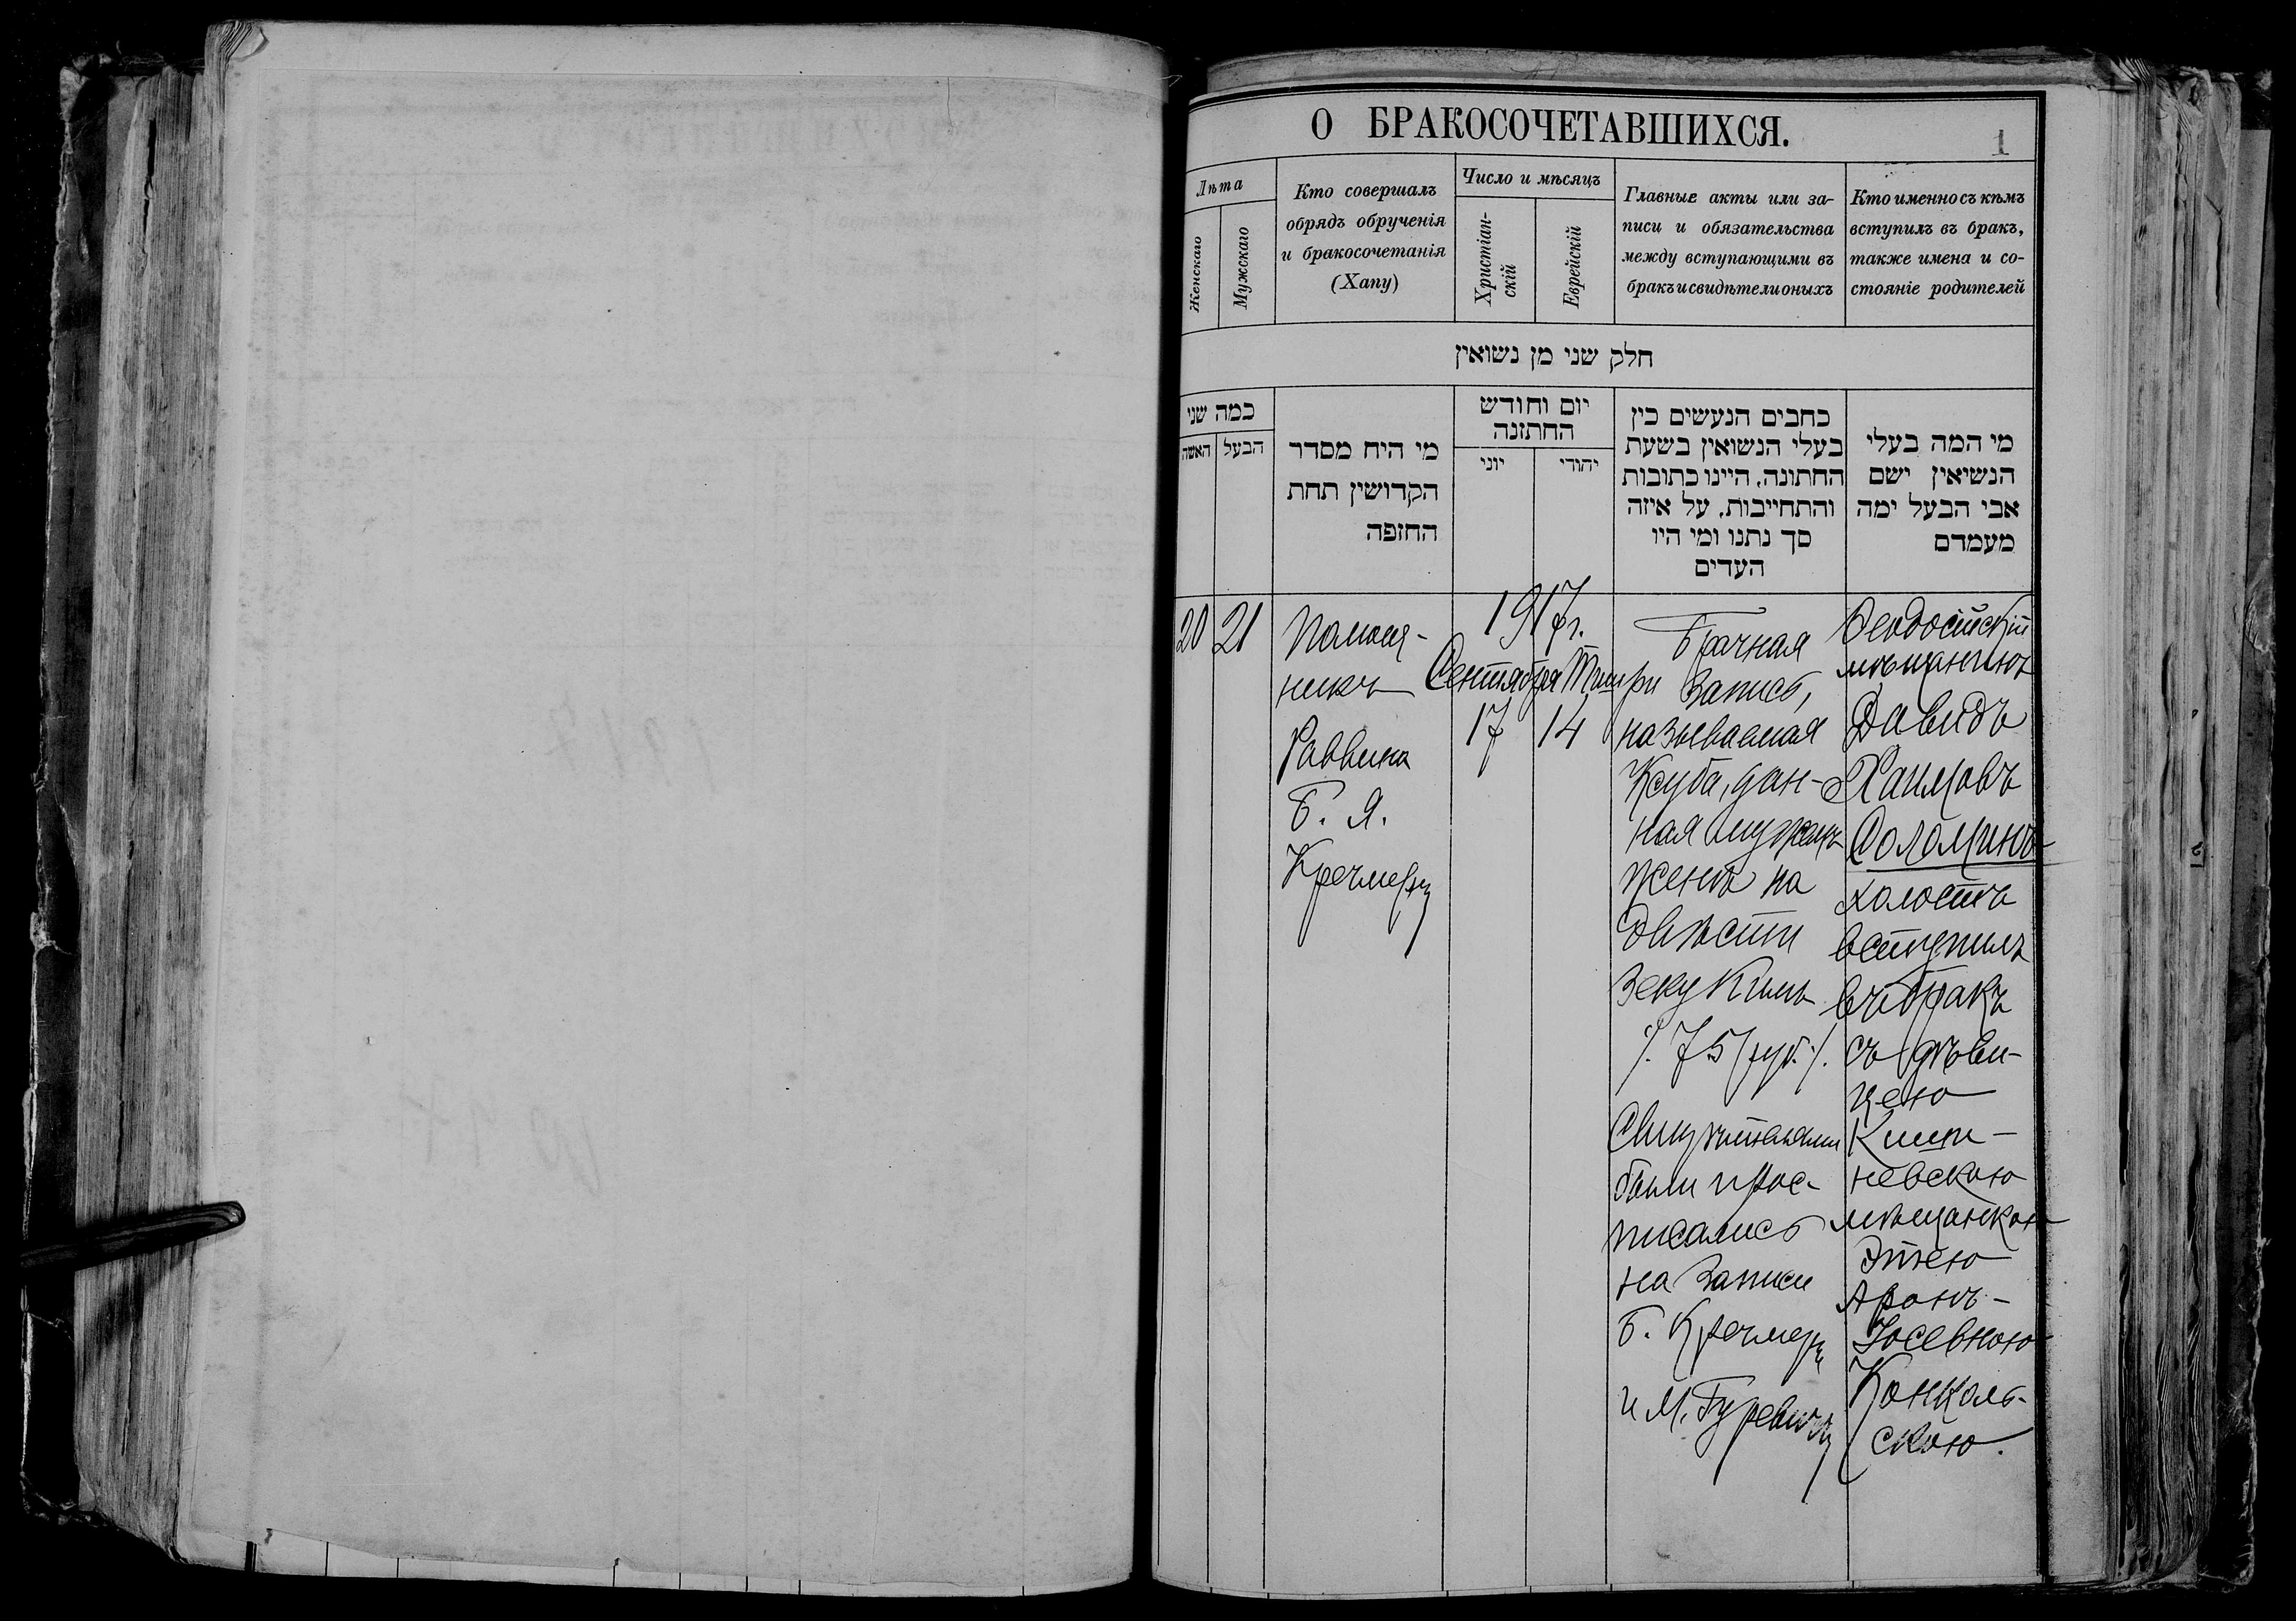 О БРАКОСОЧЕТАВШИХСЯ.
1
Лѣта
Женскаго
Мужскаго
Кто совершалъ
обрядъ обрученія
и бракосочетанія
(Хапу)
Число и мѣсяцъ
Христіан-
скій
Еврейскій
Главные акты или за-
писи и обязательства
между вступающими въ
бракъ и свидѣтели оныхъ
Кто именно съ кѣмъ
вступилъ въ бракъ,
также имена и со-
стояніе родителей
חלק שני מן נשואין
כמה שני
האשה
הבעל
מי היח מסדר
הקדושין תחת
החופה
יום וחודש
החתונה
יוני
יהודי
כחבים הנעשים כין
בעלי הנשואין בשעת
החתונה, היינו כתובות
והתחייבות, על איזה
סך נתנו ומי היו
העדים
מי המה בעלי
הנשיאין ישם
אבי הבעל ימה
מעמדם
20
21
Помощ-
никъ
Раввина
Б. Я.
Кречмеръ
1917 г.
Сентября Тишри
17
14
Брачная
запись,
называемая
Ксуба, дан-
ная мужемъ
женѣ на
двѣсти
зекукимъ
/. 75 руб. /.
Свидѣтелями
были и рос-
писались
на записи
Б. Кречмеръ
и М. Гуревичъ
Ѳеодосійскій
мѣщанинъ
Давидъ
Хаимовъ
Соломинъ
холостъ
вступилъ
въ бракъ
съ дѣви-
цею
Киши-
невскою
мѣщанкою
Этею
Аронъ-
Іосевною
Конколь-
скою.